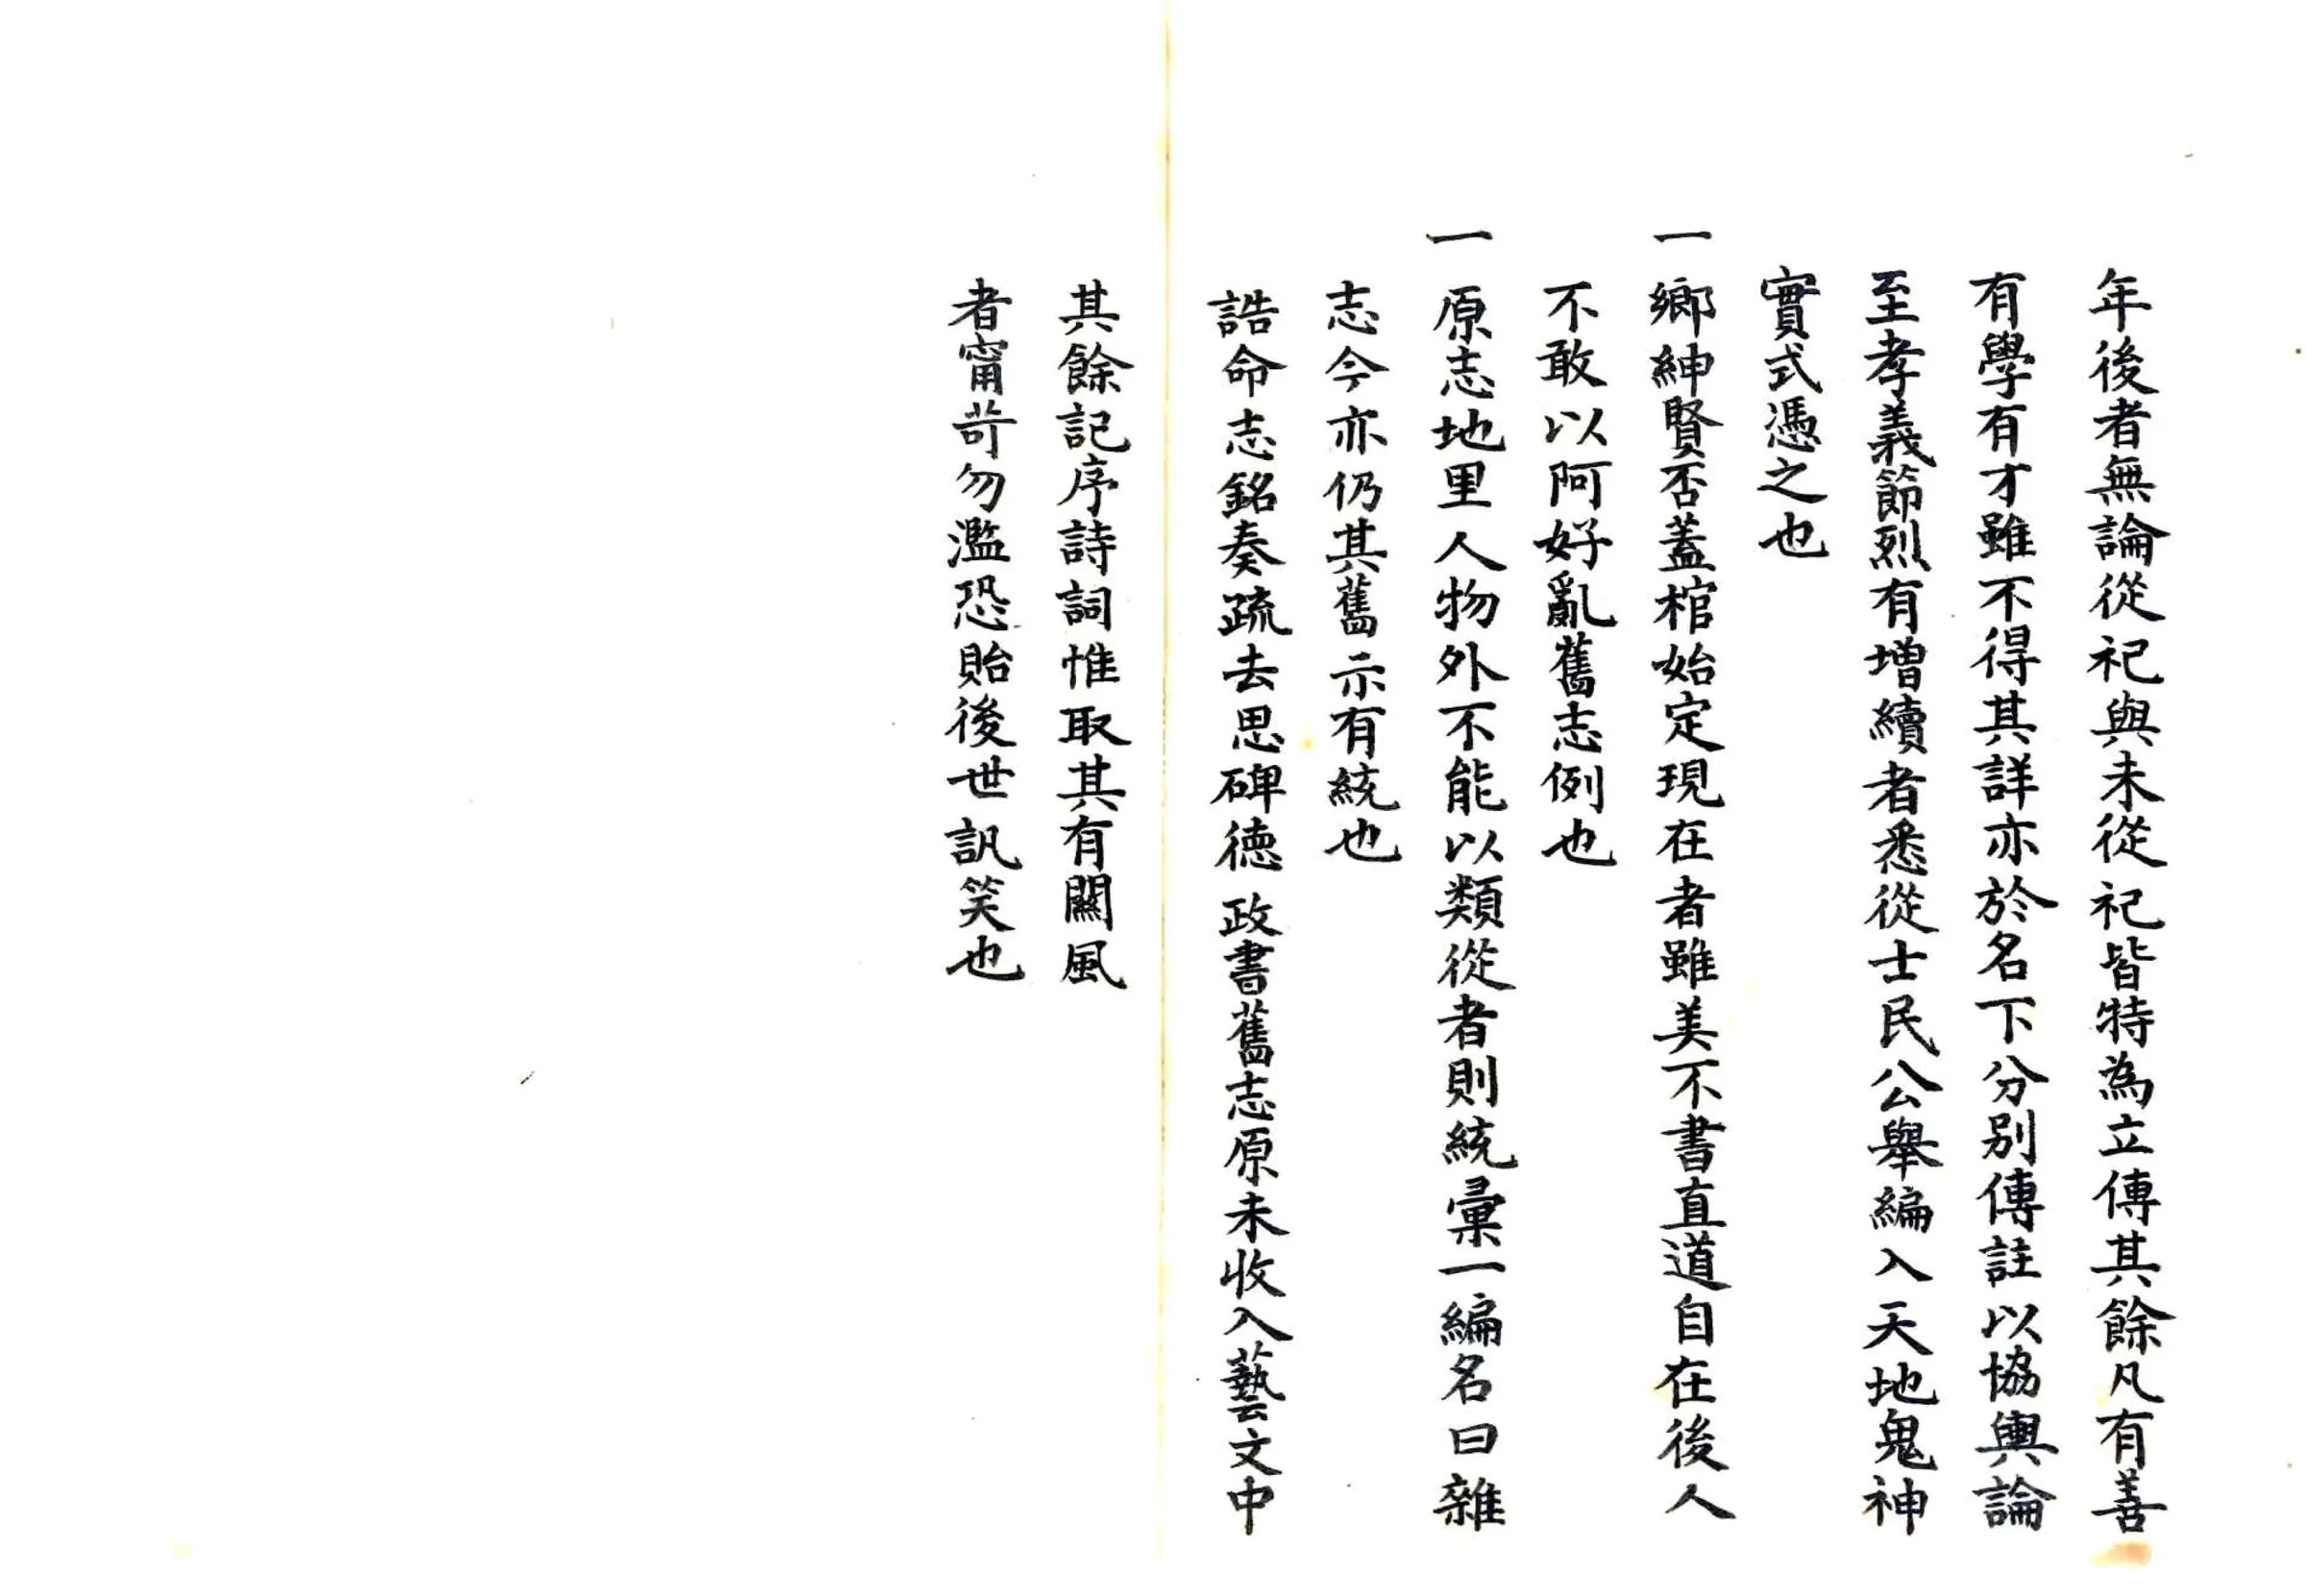 年後者無論從祀與未從祀皆特為立傳其餘凡有善
有學有才雖不得其詳亦於名下分別傳註以協輿論
至孝義節烈有增續者悉從士民公舉編入天地鬼神
實式憑之也
一鄉紳賢否蓋棺始定現在者雖美不書直道自在後人
不敢以阿好亂舊志例也
一原志地里人物外不能以類從者則統彙一編名曰雜
志今亦仍其舊示有統也
誥命志銘奏疏去思碑德政書舊志原未收入藝文中
其餘記序詩詞惟取其有關風
者甯苛勿濫恐貽後世訊笑也